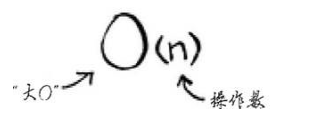 O(n)
"大O"
操作数